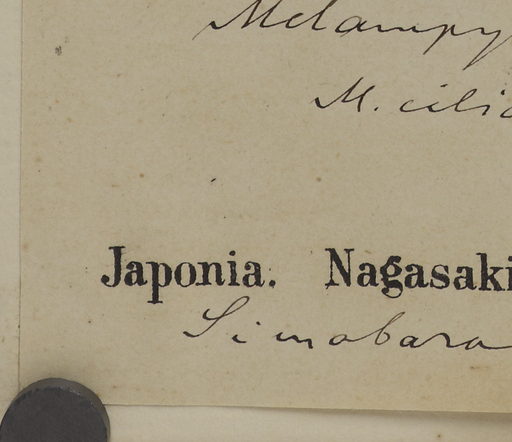 Melampy
M. cilia
Japonia. Nagasaki
Simabara